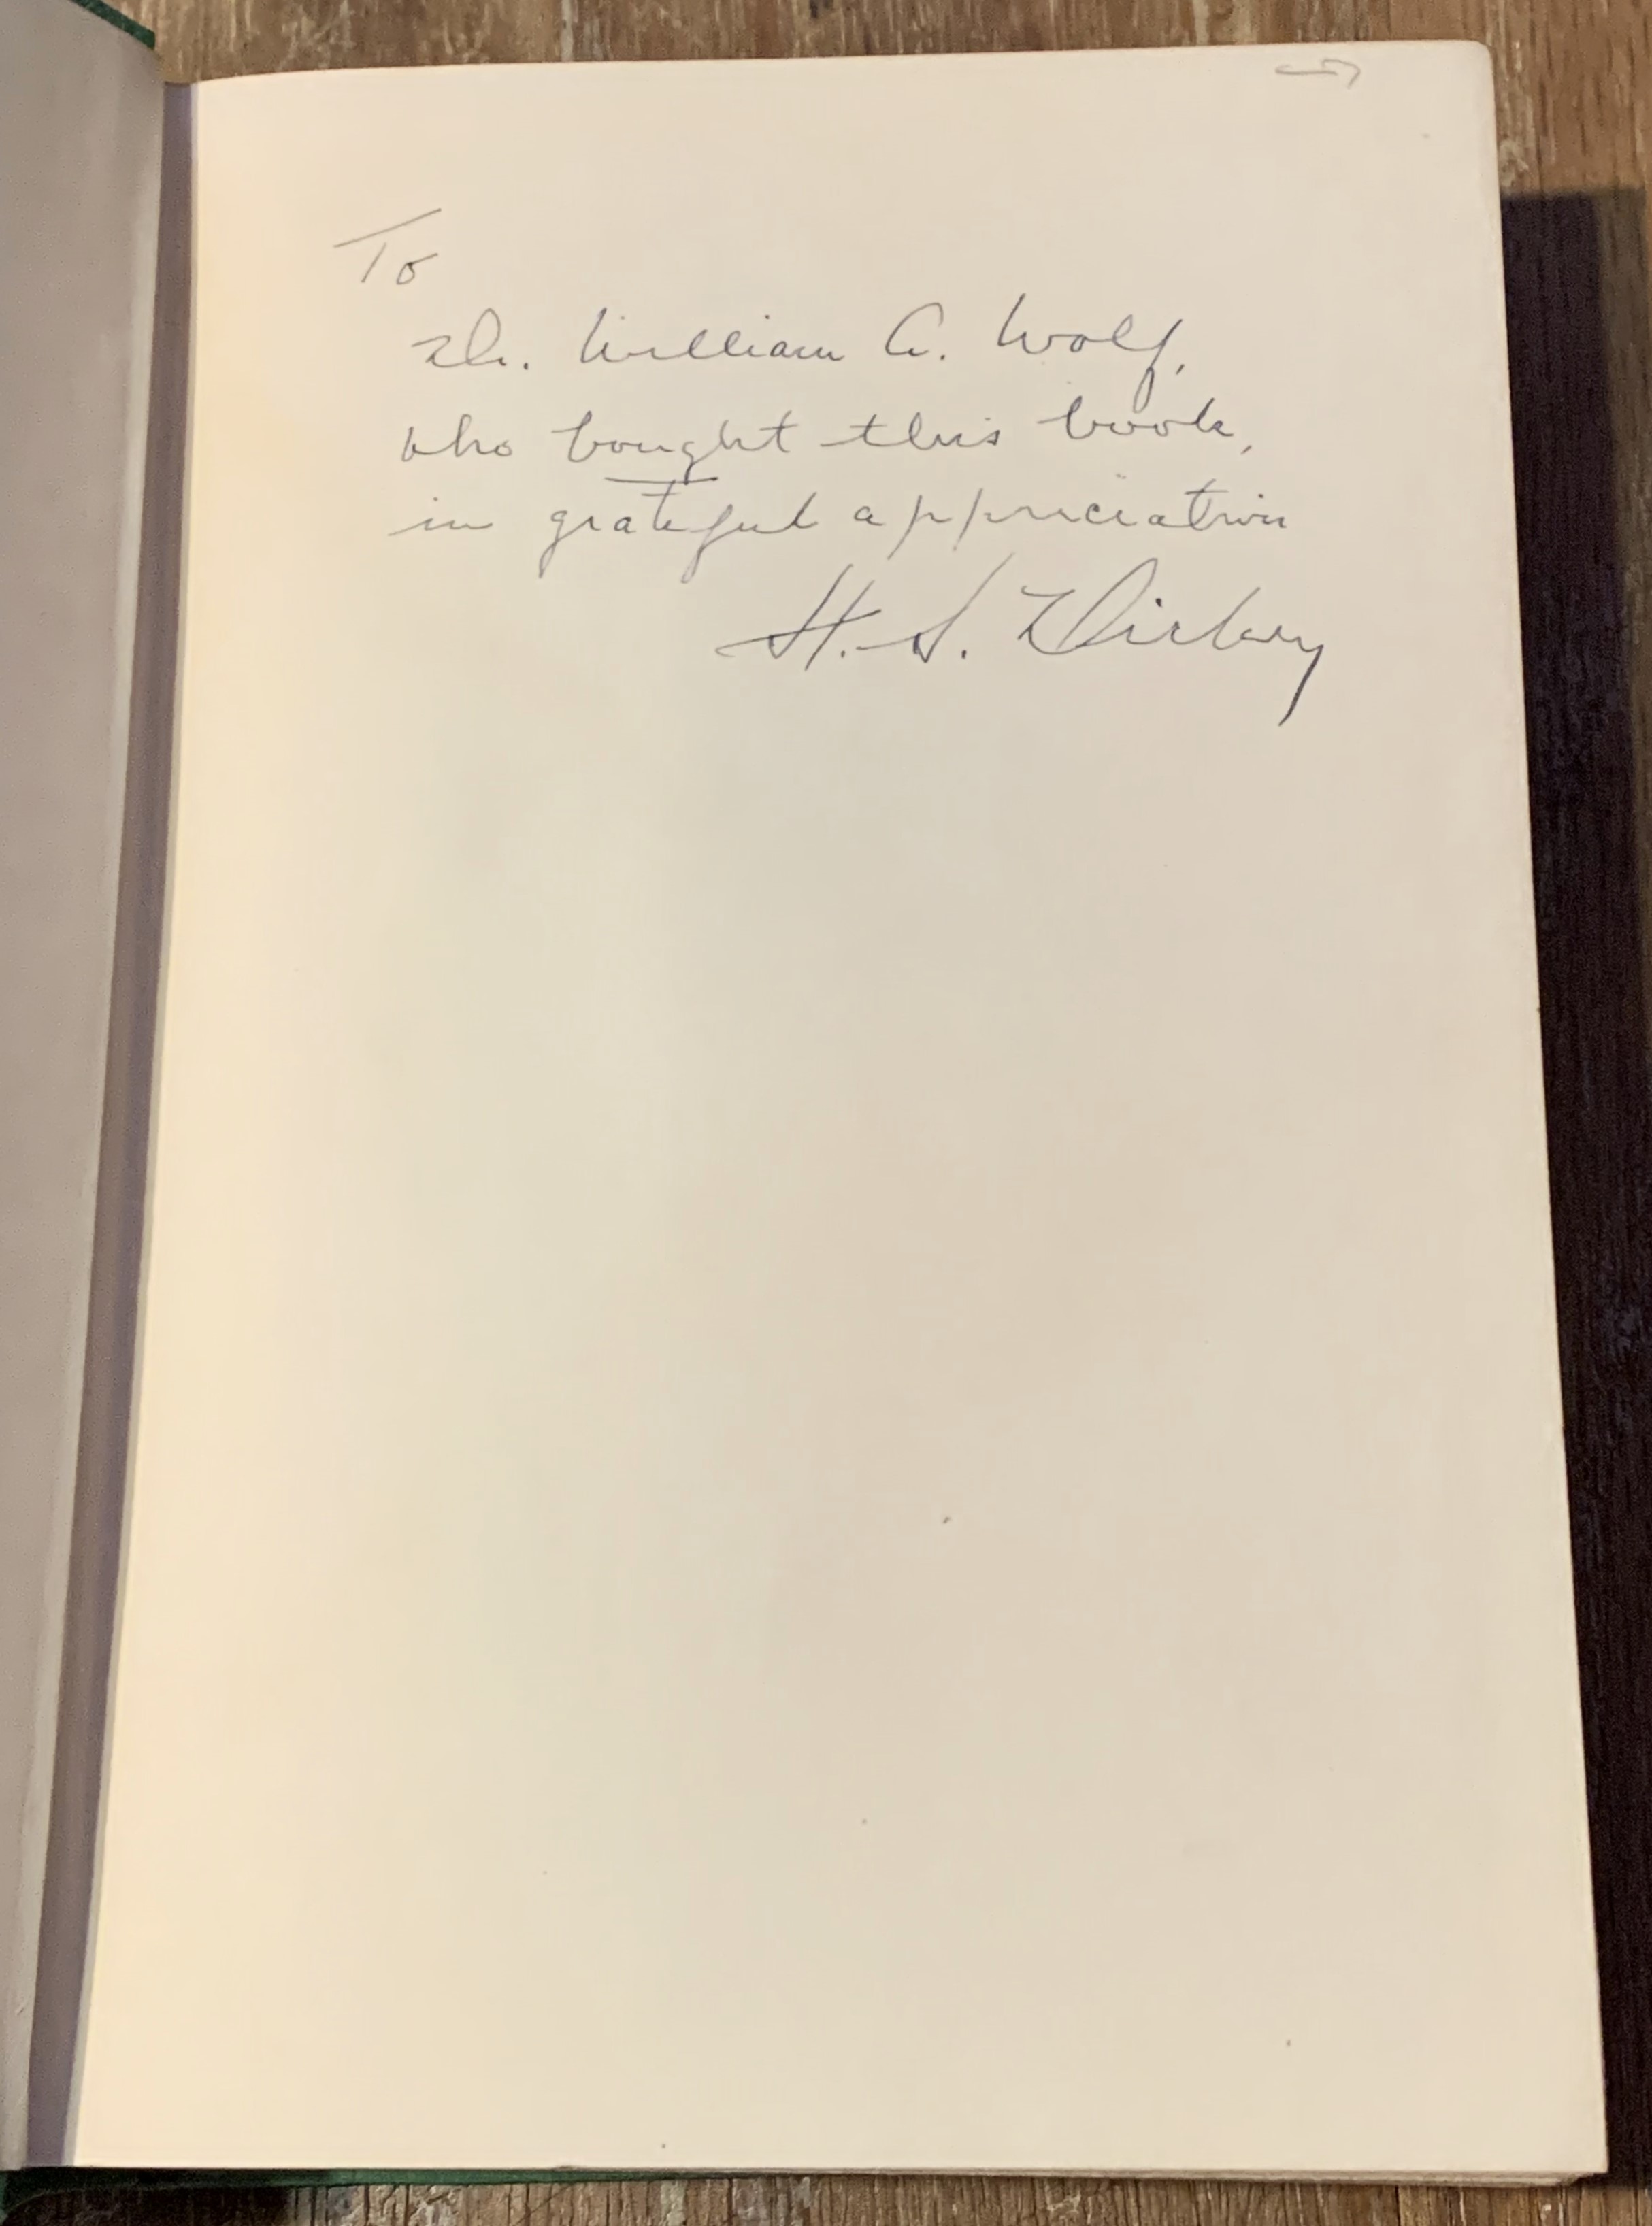 To
Dr. William A. Wolf,
who bought this book,
in grateful appreciation
H. S.